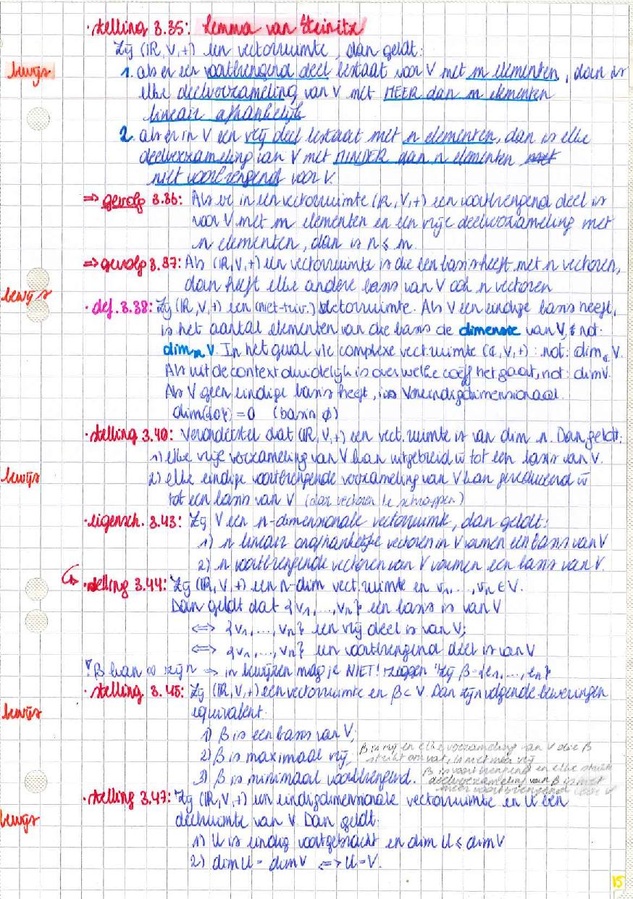 · stelling 3.35: Lemma van Steinitz
Zij (ℝ, V, +) een vectorruimte, dan geldt:
bewijs
1. als er een voortbrengend deel bestaat voor V met m elementen, dan is
elke deelverzameling van V met MEER dan m elementen
lineair afhankelijk
2. als er in V een vrij deel bestaat met n elementen, dan is elke
deelverzameling van V met MINDER dan n elementen
niet voortbrengend voor V.
⇒ gevolg 3.36: Als er in een vectorruimte (ℝ, V, +) een voortbrengend deel is
voor V met m elementen en een vrije deelverzameling met
n elementen, dan is n ≤ m.
⇒ gevolg 3.37: Als (ℝ, V, +) een vectorruimte is die een basis heeft met n vectoren,
dan heeft elke andere basis van V ook n vectoren
bewijs
· def. 3.38: Zij (ℝ, V, +) een (niet-triv.) vectorruimte. Als V een eindige basis heeft,
is het aantal elementen van die basis de dimensie van V, & not:
dim_ℝ V. In het geval v/e complexe vect.ruimte (ℂ, V, +): not: dim_ℂ V.
Als uit de context duidelijk is over welke coëff het gaat, not: dim V.
Als V geen eindige basis heeft, is V oneindigdimensionaal.
dim{0} = 0 (basis ∅)
· stelling 3.40: Veronderstel dat (ℝ, V, +) een vect.ruimte is van dim n. Dan geldt:
1) elke vrije verzameling van V kan uitgebreid w tot een basis van V.
bewijs
2) elke eindige voortbrengende verzameling van V kan gereduceerd w
tot een basis van V (door vectoren te schrappen)
· eigensch. 3.43: Zij V een n-dimensionale vectorruimte, dan geldt:
1) n lineair onafhankelijke vectoren in V vormen een basis van V
2) n voortbrengende vectoren van V vormen een basis van V.
· stelling 3.44: Zij (ℝ, V, +) een n-dim vect.ruimte en v₁, ..., vₙ ∈ V.
Dan geldt dat {v₁, ..., vₙ} een basis is van V
⇔ {v₁, ..., vₙ} een vrij deel is van V;
⇔ {v₁, ..., vₙ} een voortbrengend deel is van V
β kan ∞ zijn → in bewijzen mag je NIET! zeggen "zij β = {e₁, ..., eₙ}
· stelling 3.45: Zij (ℝ, V, +) een vectorruimte en β ⊂ V. Dan zijn volgende beweringen
bewijs
equivalent:
1) β is een basis van V;
2) β is maximaal vrij; β is vrij en elke verzameling van V die β
strikt omvat, is niet meer vrij
3) β is minimaal voortbrengend. β is voortbrengend en elke strikte
deelverzameling van β is niet
meer voortbrengend voor V
· stelling 3.47: Zij (ℝ, V, +) een eindigdimensionale vectorruimte en U een
bewijs
deelruimte van V. Dan geldt:
1) U is eindig voortgebracht en dim U ≤ dim V
2) dim U = dim V ⇔ U = V.
15